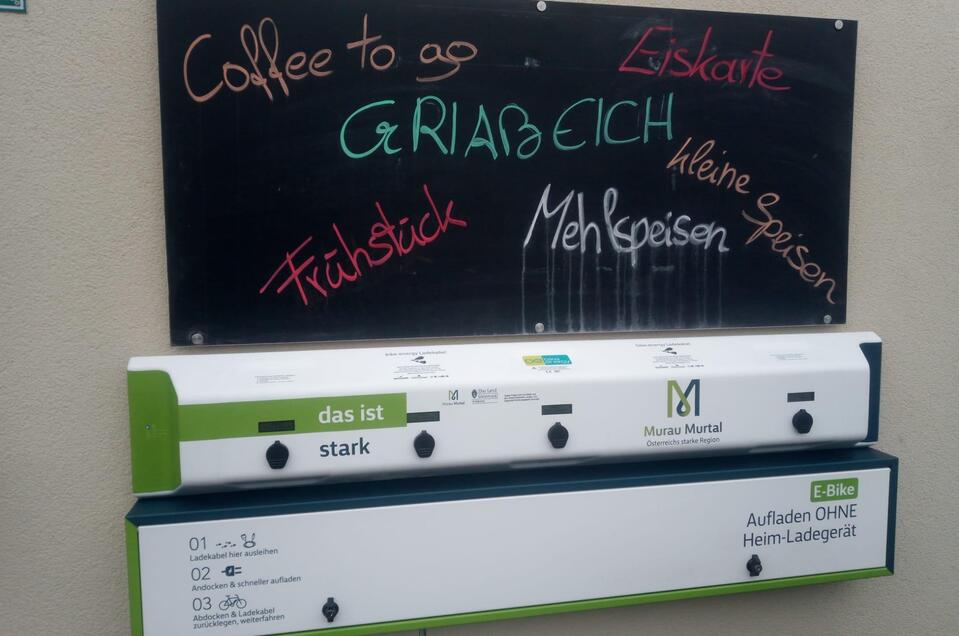 Coffee to go
Eiskarte
GRIAßEICH
kleine Speisen
Frühstück
Mehlspeisen
bike-energy Ladekabel
bike-energy Ladekabel
das ist
stark
Murau Murtal
Österreichs starke Region
E-Bike
Aufladen OHNE
Heim-Ladegerät
01
Ladekabel hier ausleihen
02
Andocken & schneller aufladen
03
Abdocken & Ladekabel
zurücklegen, weiterfahren